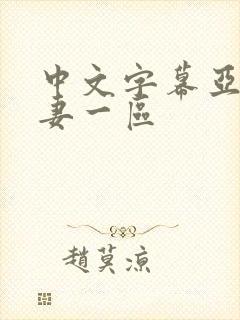 中文字幕亞
妻一區
趙莫涼